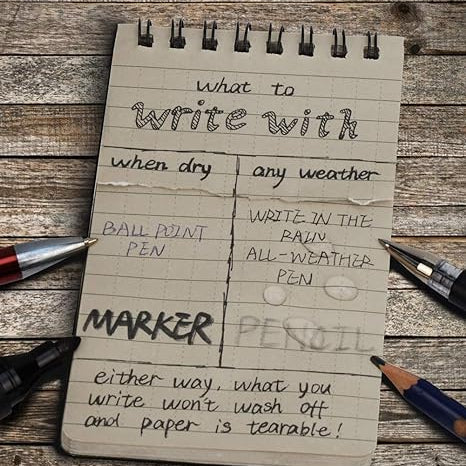 what to
write with
when dry
any weather
BALL POINT
PEN
WRITE IN THE
RAIN
ALL-WEATHER
PEN
MARKER
PENCIL
either way, what you
write won't wash off
and paper is tearable!